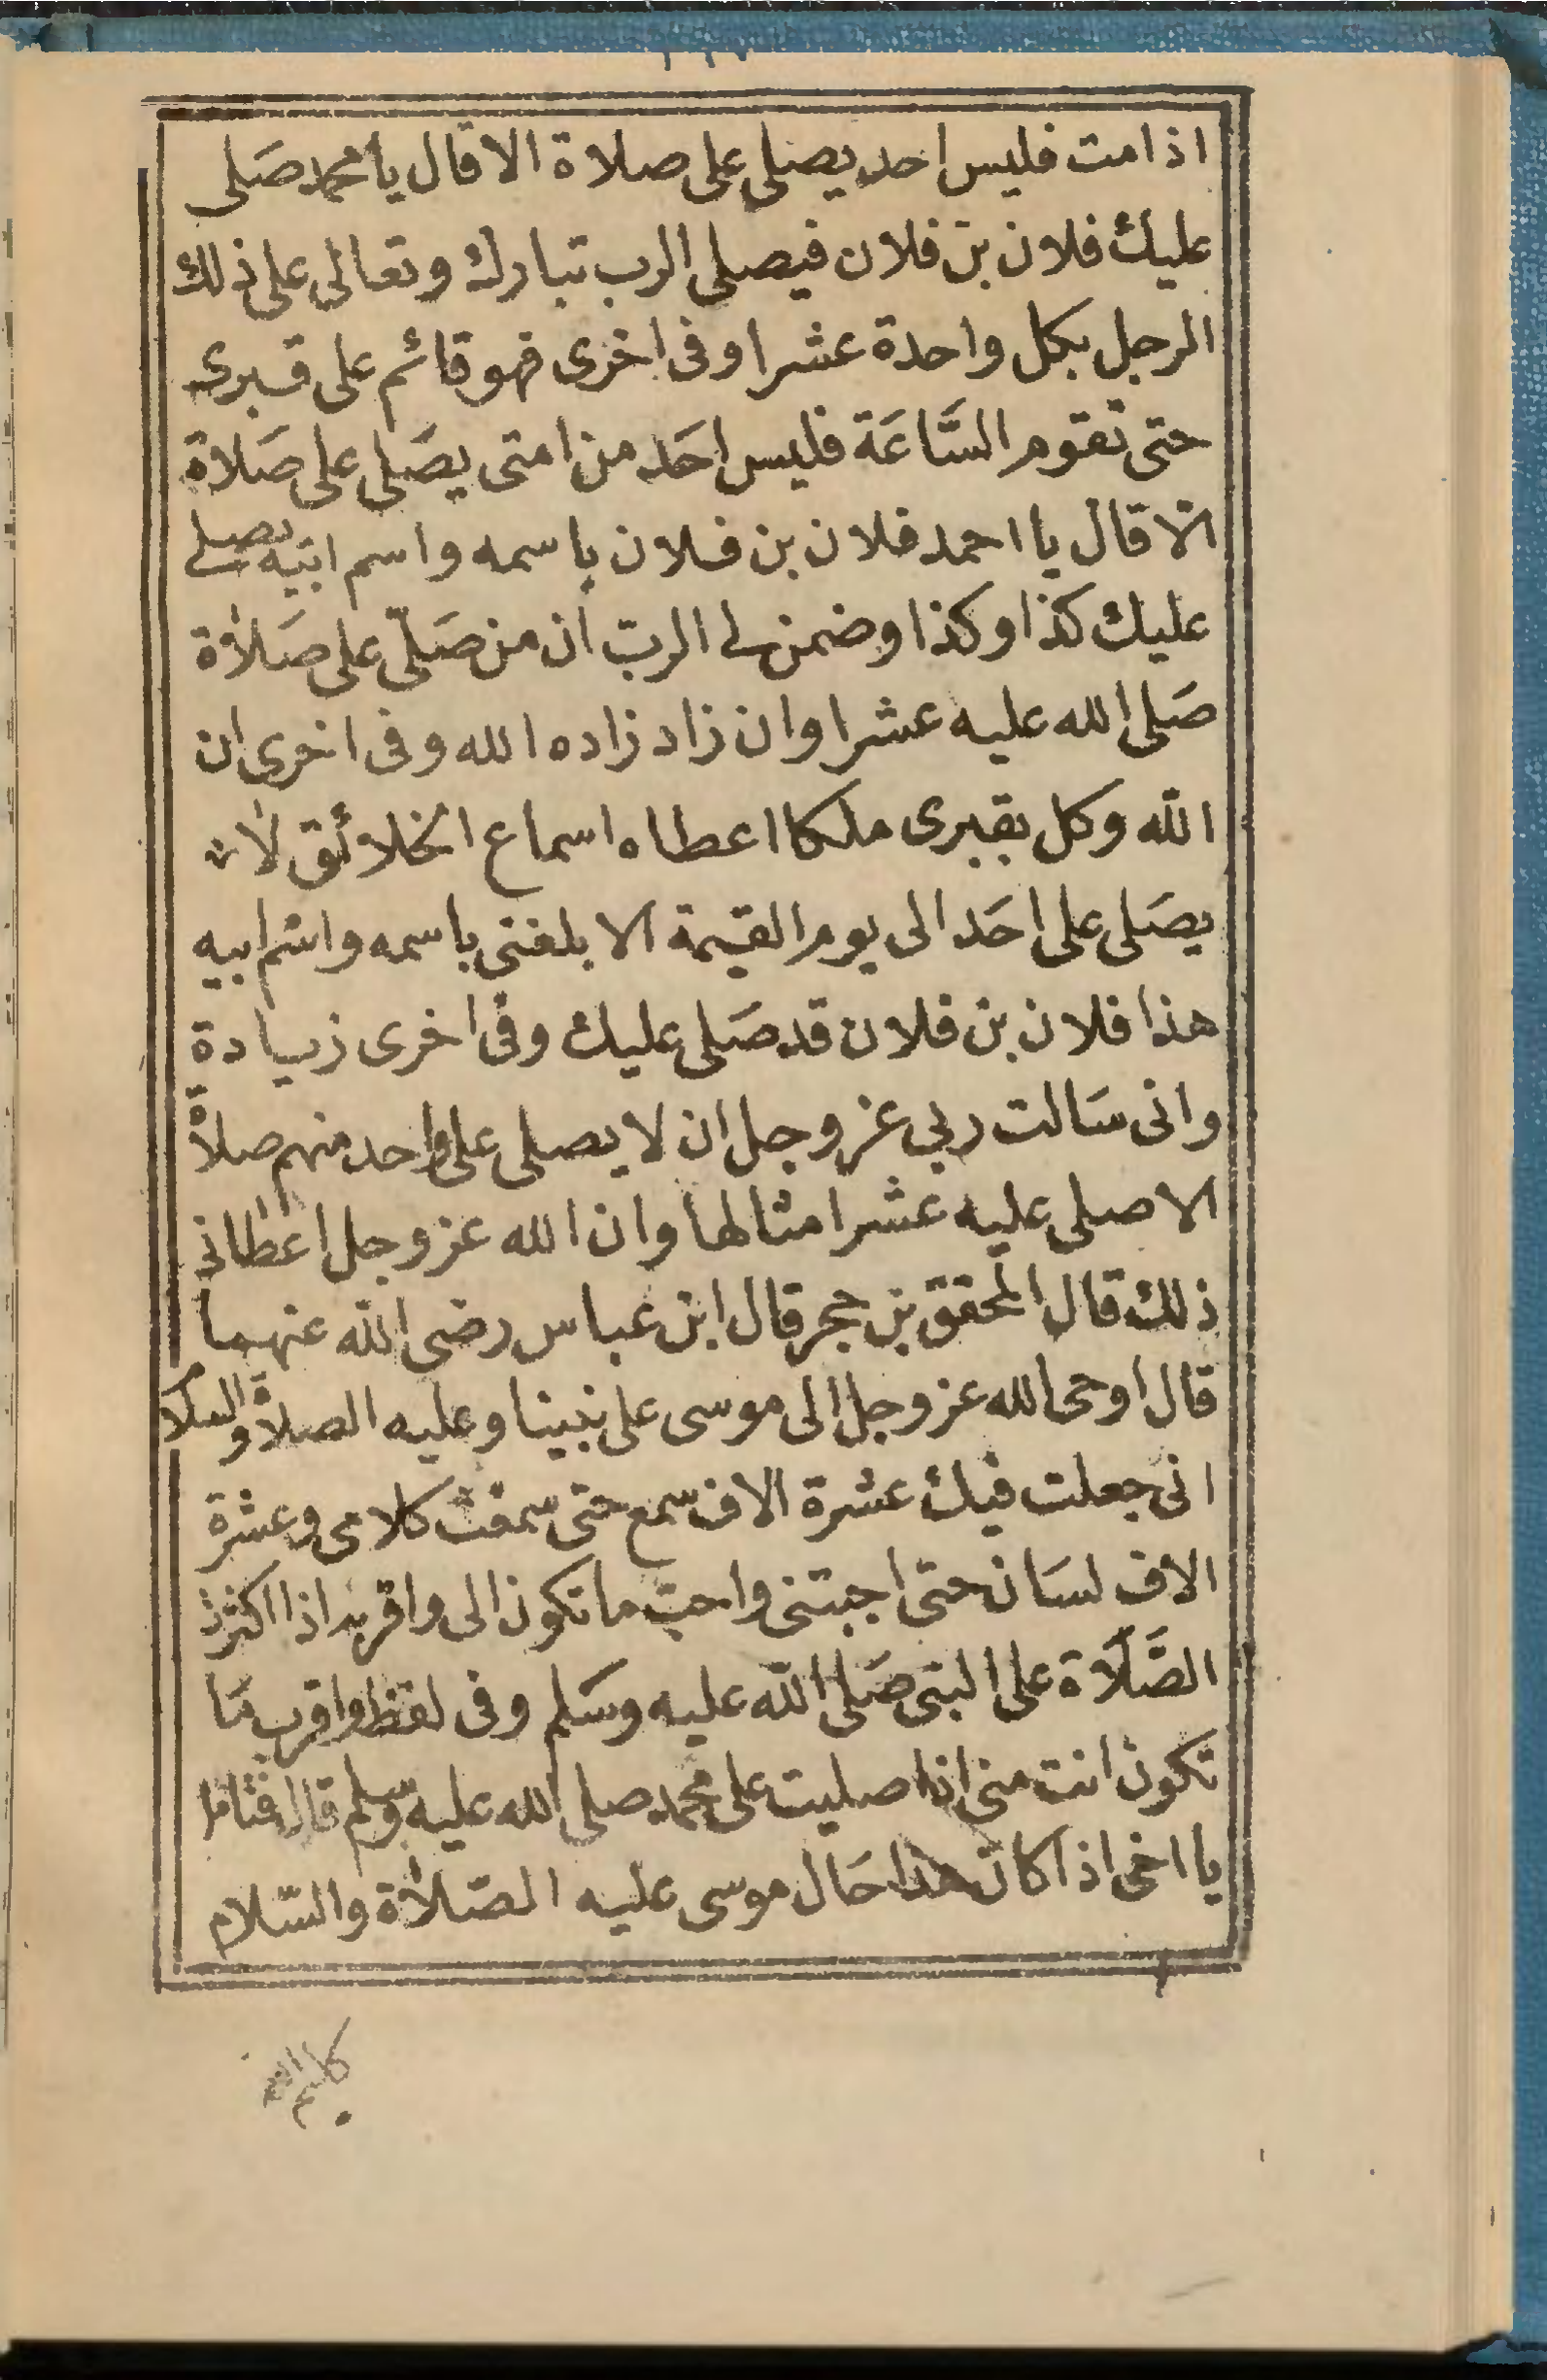 اذا مت فليس احد يصلى على صلاة الا قال يا محمد صَلى
عليك فلان بن فلان فيصلى الرب تبارك وتعالى على ذلك
الرجل بكل واحدة عشرا وفى اخرى فهو قائم على قبرى
حتى تقوم السَّاعَة فليس احَد من امتى يصَلى على صَلاة
الا قال يا احمد فلان بن فلان باسمه واسم ابيه يصلى
عليك كذا وكذا وضمن لى الربّ ان من صَلّى على صَلاة
صَلى الله عليه عشرا وان زاد زاده الله وفى اخرى ان
الله وكل بقبرى ملكا اعطاه اسماع الخلائق لا
يصَلى على احَد الى يوم القيمة الا بلغنى باسمه واسم ابيه
هذا فلان بن فلان قد صَلى عليك وفى اخرى زيادة
وانى سَالت ربي عز وجل ان لا يصلى على واحد منهم صلاةً
الا صلى عليه عشرا مثالها وان الله عز وجل اعطانى
ذلك قال المحقق بن حجر قال ابن عباس رضى الله عنهما
قال اوحى الله عز وجل الى موسى على نبينا وعليه الصلاة والسلا
انى جعلت فيك عشرة الاف سمع حتى سمعت كلامى وعشرة
الاف لسَان حتى اجبتنى واحبّ ما تكون الى واقربه اذا اكثرت
الصَّلَاة على النبى صَلى الله عليه وسَلم وفى لفظ واقرب مَا
تكون انت منى اذا صليت على محمد صلى الله عليه وسلم قال فتامل
يا اخى اذا كان هذا حَال موسى عليه الصّلاة والسّلام
كليم الله